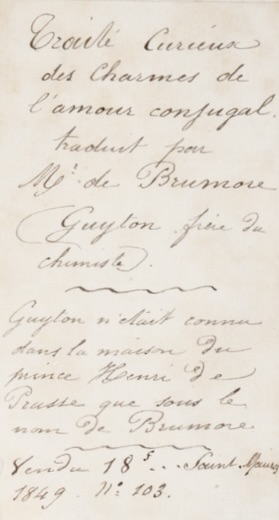 Traité Curieux
des Charmes de
l'amour conjugal.
traduit par
Mr. de Brumore
(Guyton frère du
chimiste).
Guyton n'était connu
dans la maison du
prince Henri de
Prusse que sous le
nom de Brumore
Vendu 18 f... Saint Mauris
1849. No 103.